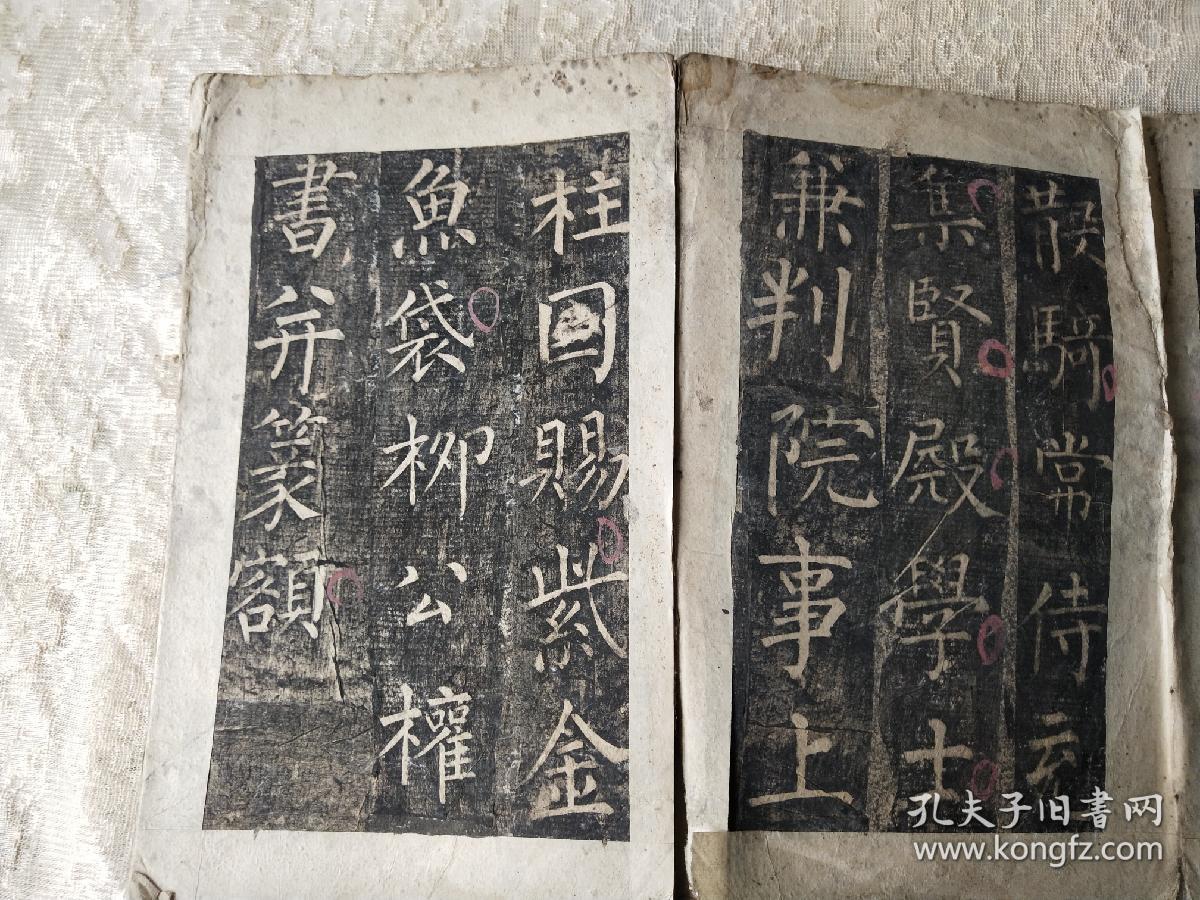 散騎常侍充
集賢殿學士
兼判院事上
柱國賜紫金
魚袋柳公權
書并篆額
孔夫子旧書网
www.kongfz.com